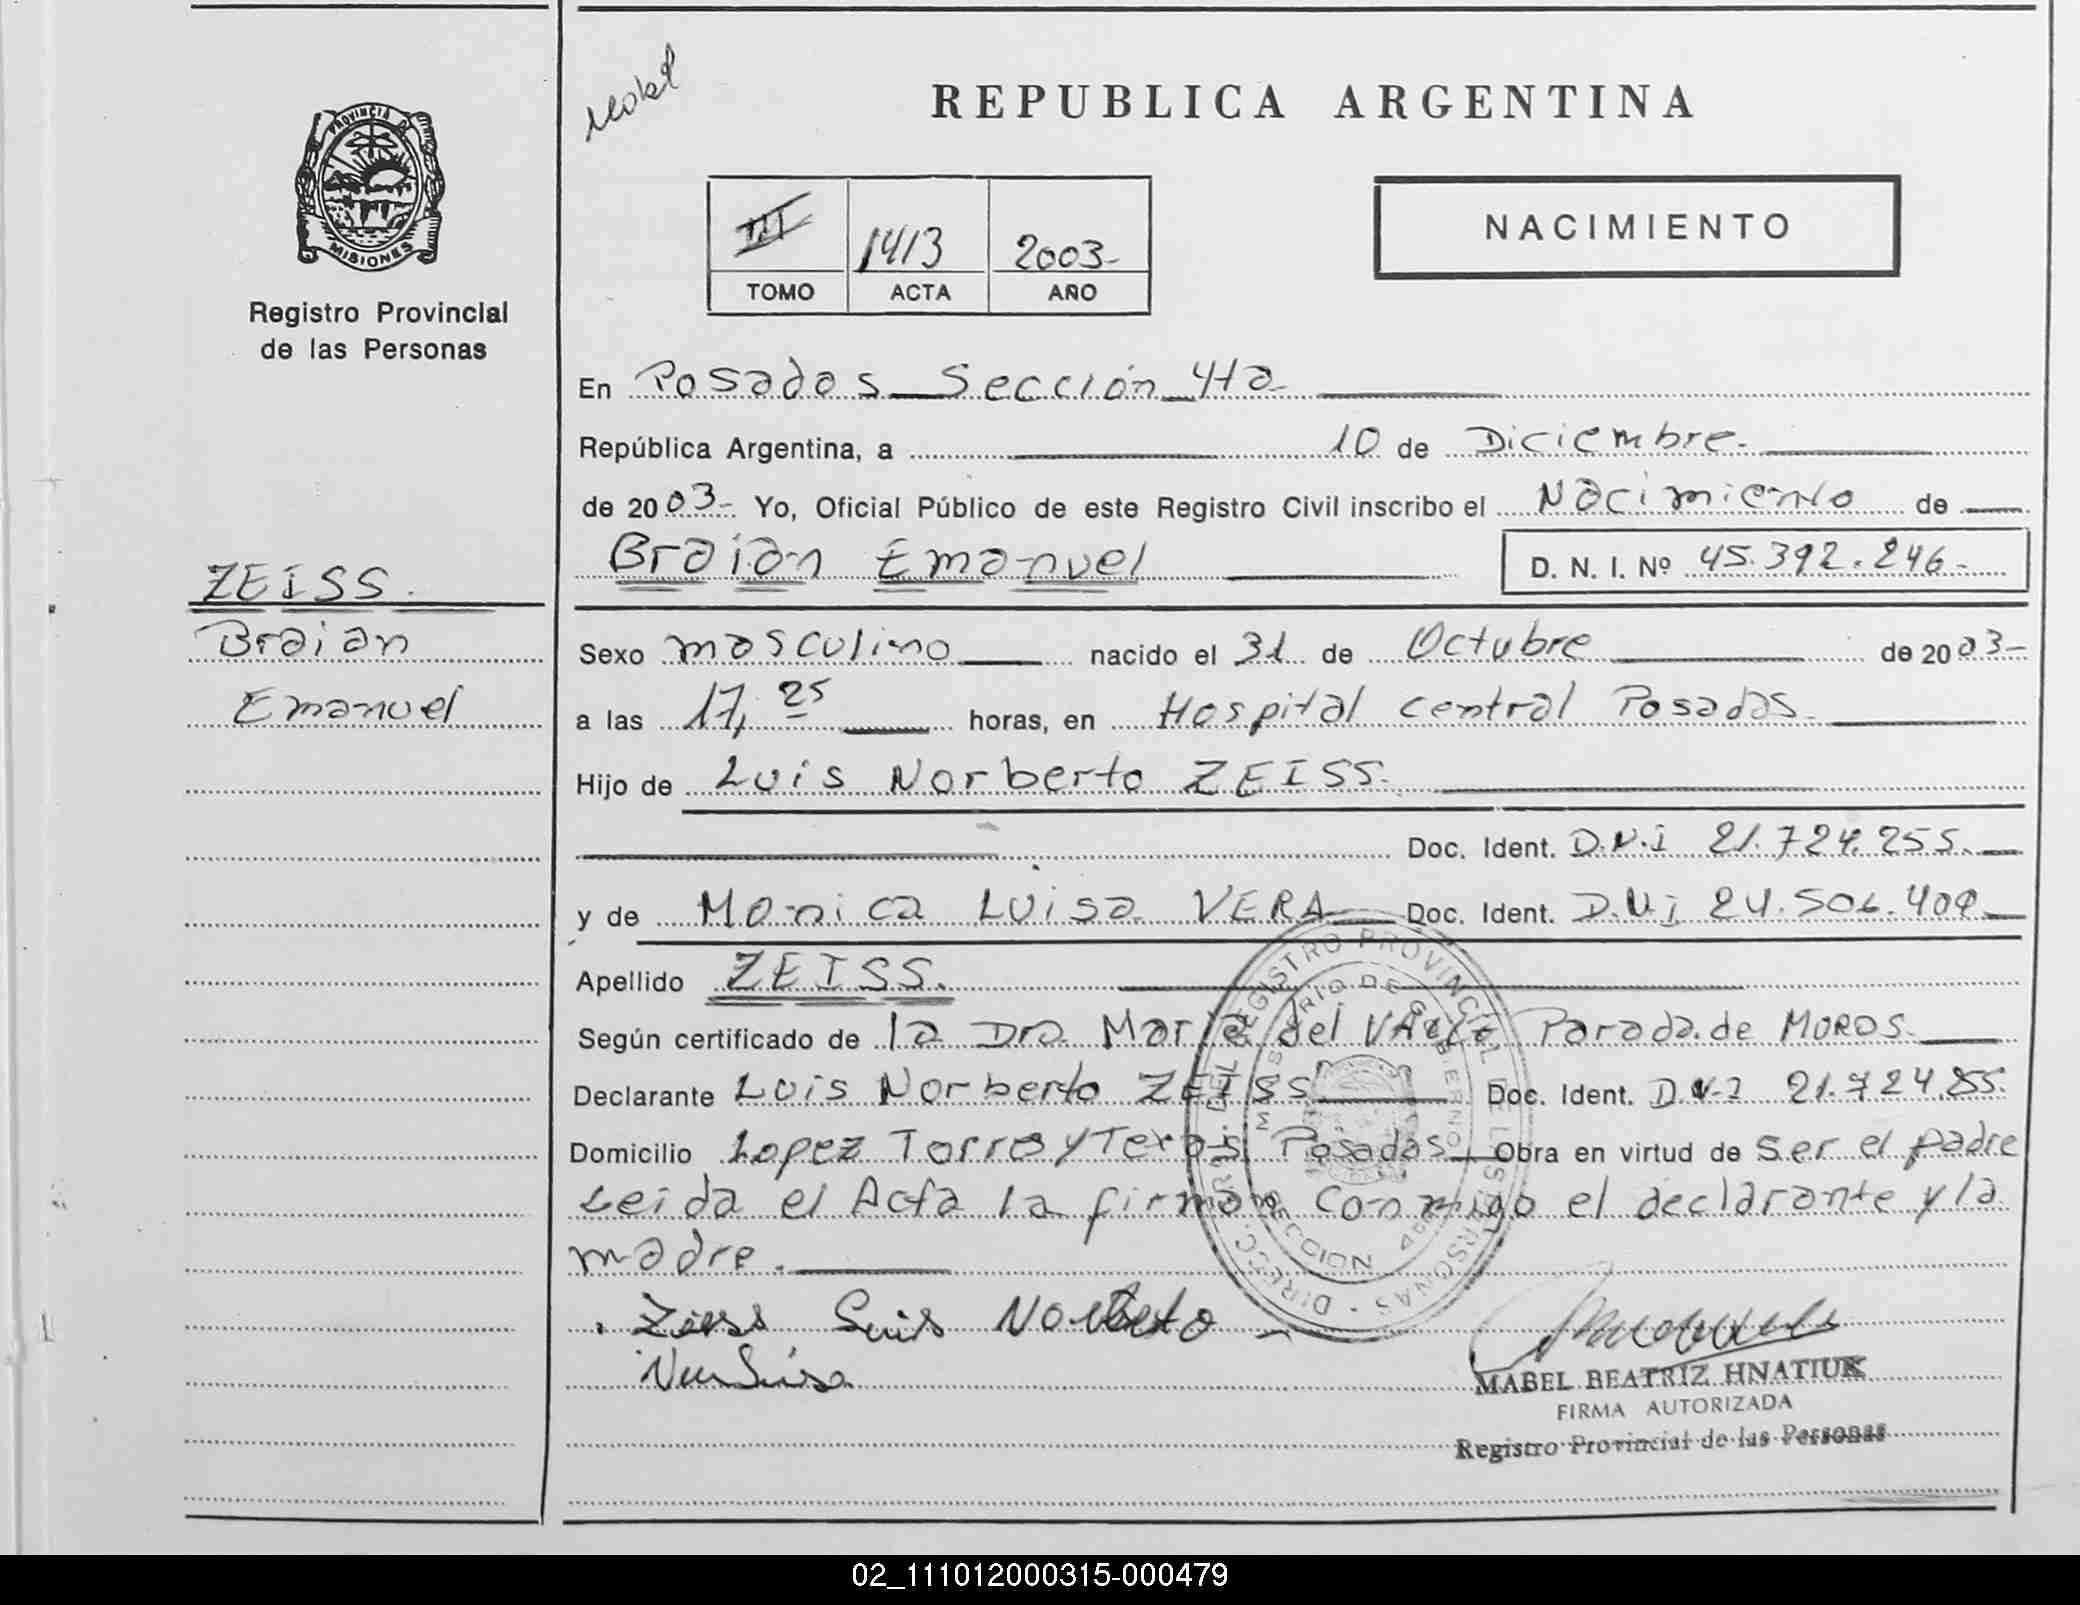 Mabel
REPUBLICA ARGENTINA
PROVINCIA DE
MISIONES
Registro Provincial
de las Personas
III 1413 2003-
TOMO ACTA AÑO
NACIMIENTO
En Posadas Sección 4ta
República Argentina, a 10 de Diciembre.
de 2003- Yo, Oficial Público de este Registro Civil inscribo el Nacimiento de
Braian Emanuel D. N. I. Nº 45.392.246-
ZEISS.
Braian
Emanuel
Sexo masculino nacido el 31 de Octubre de 2003-
a las 17,25 horas, en Hospital Central Posadas
Hijo de Luis Norberto ZEISS.
Doc. Ident. D.N.I 21.724.255.
y de Monica Luisa VERA Doc. Ident. D.N.I
Apellido ZEISS.
Según certificado de la Dra Maria del Parada de MOROS.
Declarante Luis Norberto ZEISS Doc. Ident. D.N.I 21.724.255.
Domicilio Lopez Torres y Texas Posadas Obra en virtud de Ser el padre
Leida el Acta la firman conmigo el declarante y la
madre.
Zeiss Luis Norberto
MABEL BEATRIZ HNATIUK
FIRMA AUTORIZADA
Registro Provincial de las Personas
02_111012000315-000479